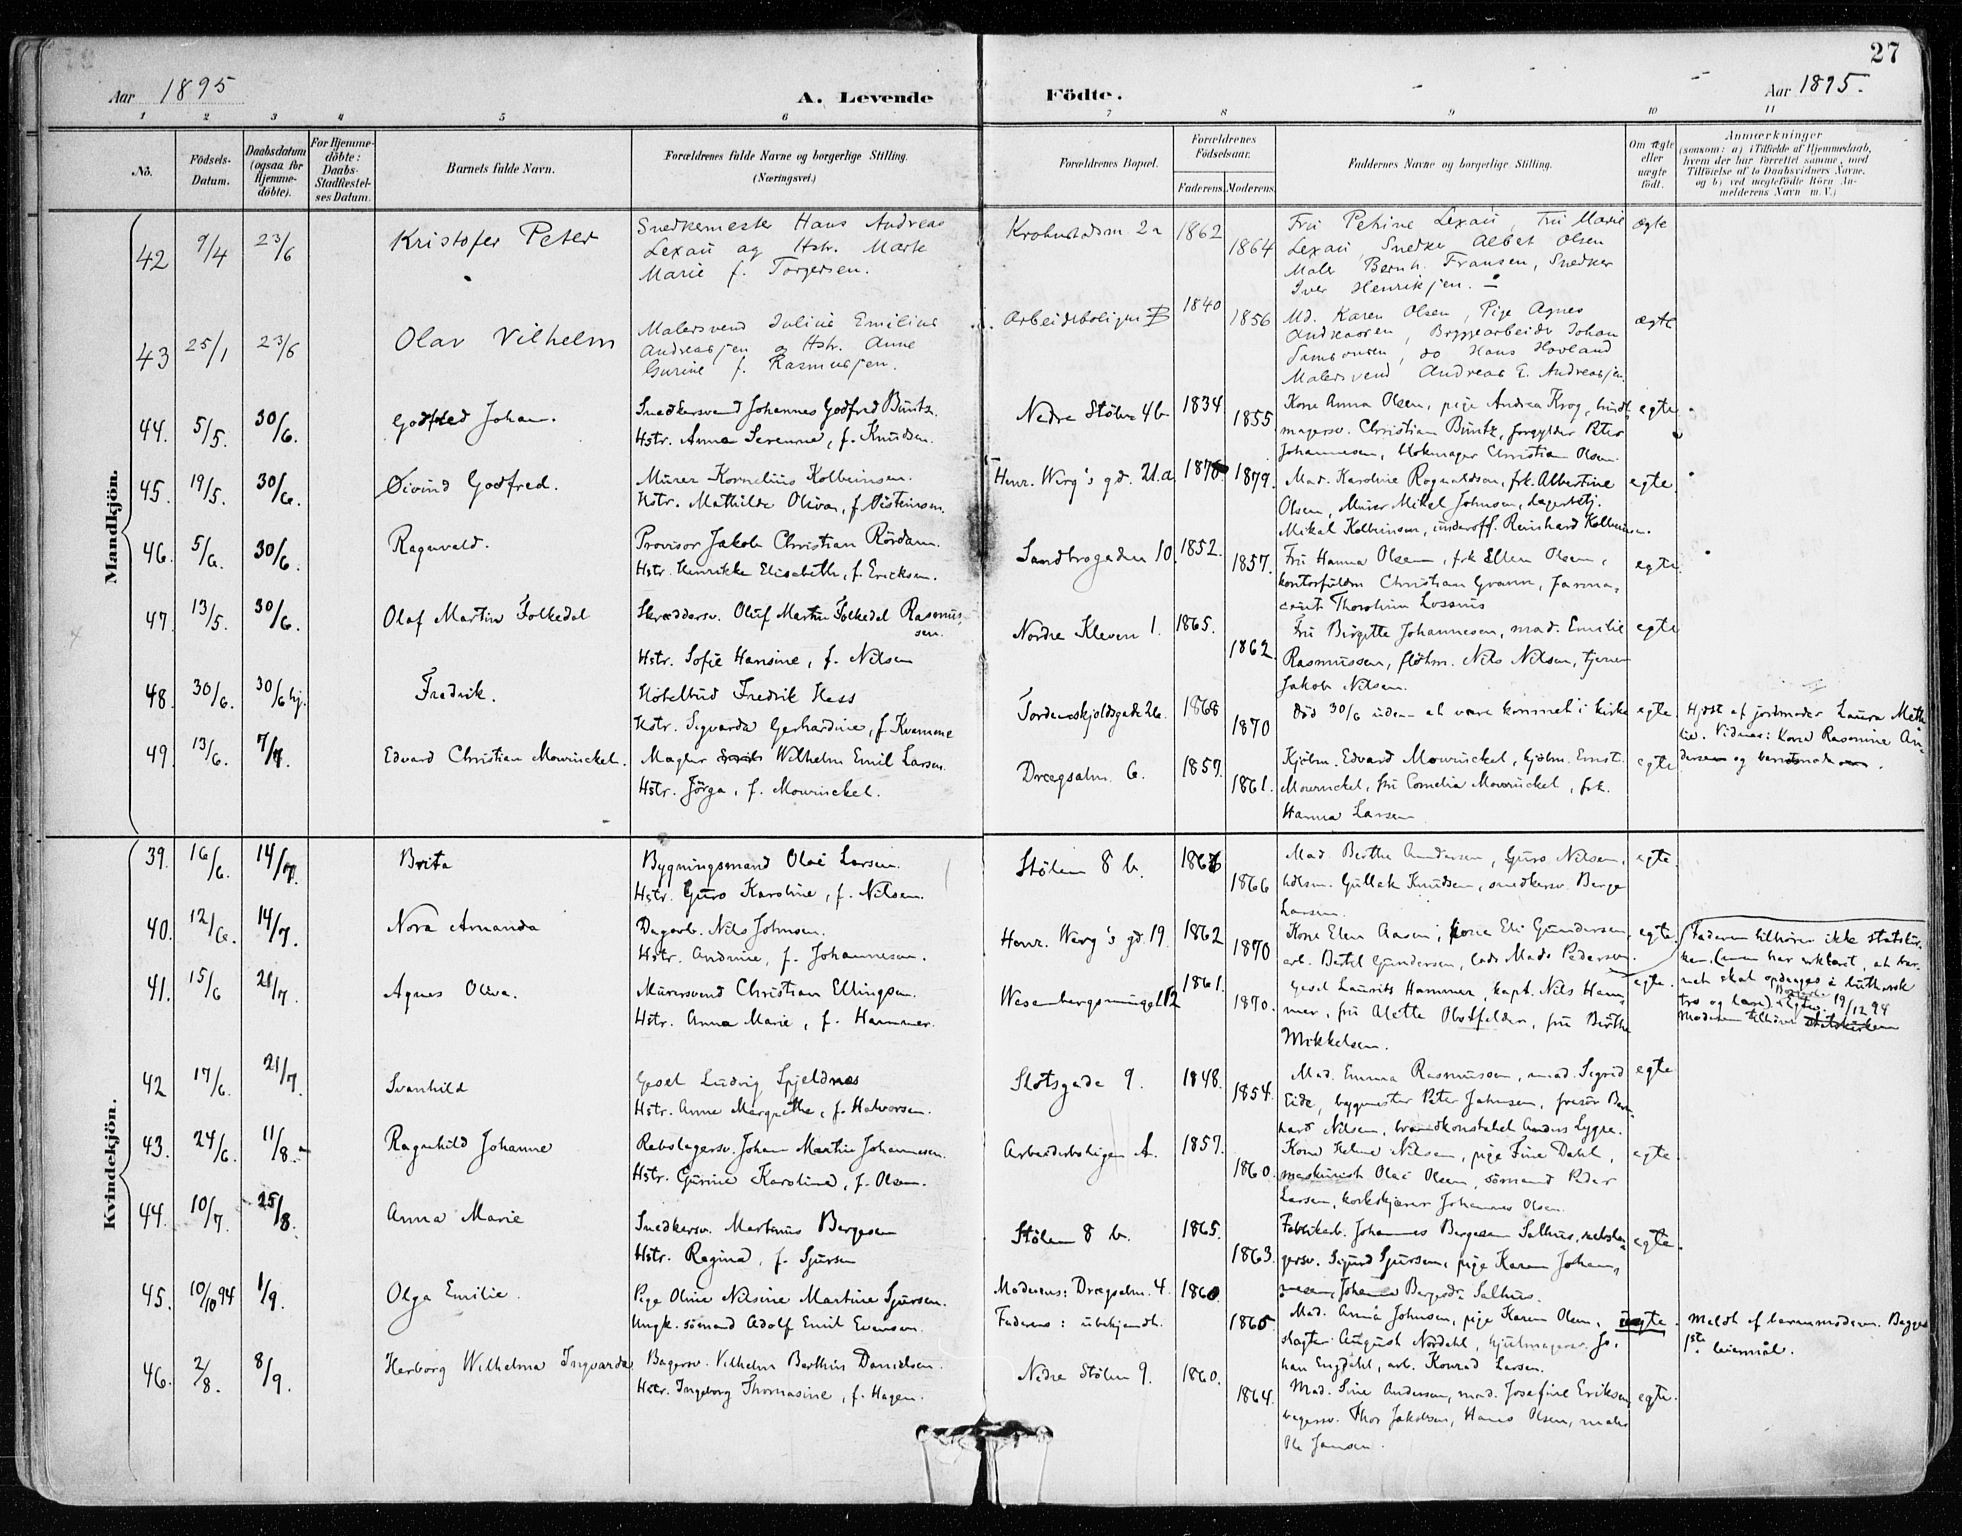 27
Aar 1895
A. Levende Födte.
Aar 1895.
1 2 3 4 5 6 7 8 9 10 11
No.
Födsels-Datum.
Daabsdatum (ogsaa for Hjemme-döbte).
For Hjemme-döbte: Daabs-Stadfæstel-ses Datum.
Barnets fulde Navn.
Forældrenes fulde Navne og borgerlige Stilling.
(Næringsvei.)
Forældrenes Bopæl.
Forældrenes Födselsaar.
Faderens. Moderens.
Faddernes Navne og borgerlige Stilling.
Om ægte eller uægte født.
Anmærkninger
(saasom: a) i Tilfælde af Hjemmedaab,
hvem der har forrettet samme, med
Tilföielse af to Daabsvidners Navne,
og b) ved uægtefödte Börn An-
melderens Navn m. V.)
Mandkjön.
42 9/4 23/6 Kristofer Peter
Snedkermester Hans Andreas
Lexau og Hstr. Marte
Marie f. Torgersen.
2a 1862 1864
Fru Petrine Lexau, Fru Marie
Lexau, Snedker Albet Olsen
Maler Bernh. Fransen, Snedker
Iver Henriksen.
ægte
43 25/1 23/6 Olav Vilhelm
Malersvend Julius Emilius
Andreasjen og Hstr. Anne
Gurine f. Rasmusjen.
Arbeideboligen B 1840 1856
Md. Karen Olsen, Pige Agnes
Andreassen, Bryggearbeider Johan
Samsonsen, do Hans Hovland
Malersvend Andreas E. Andreasjen.
ægte
44. 5/5. 30/6. Godfred Johan.
Snedkersvend Johannes Godfred Buntz.
Hstr. Anna Severine, f. Knudsen.
Nedre Stølen 4b 1834 1855
Kone Anna Olsen, pige Andrea Krog, bundt-
magersv. Christian Buntz, forgylder Peter
Johannesen, blokmager Christian Olsen.
egte.
45. 19/5. 30/6. Øivind Godfred.
Murer Kornelius Kolbeinsen.
Hstr. Mathilde Oliva, f. Østeinsen.
Henr. Werg's gd. 21.a 1879.
Mad. Karoline Rognaldsen, frk. Albertine
Olsen, Murer Mikal Johnsen, lagerbetj.
Mikal Kolbeinsen, underoff. Reinhard Kolbeinsen.
egte.
46. 5/6. 30/6. Ragnvald.
Provisor Jakob Christian Rördam.
Hstr. Henrikke Elisabeth, f. Ericksen.
Sandbrogaden 10. 1852. 1857.
Fru Hanna Olsen, frk Ellen Olsen,
kontorfuldm Christian Gravin, farma-
ceut Thorolvin Lossius
egte.
47. 13/5. 30/6. Olaf Martin Folkedal
Skreddersv. Oluf Martin Folkedal Rasmus-
sen.
Hstr. Sofie Hansine, f. Nilsen
Nordre Kleven 1. 1865. 1862.
Fru Birgitte Johannesen, mad. Emilie
Rasmussen, Nils Nilsen, tjener
Jakob Nilsen.
egte
48. 30/6. 30/6 hj. Fredrik.
Hotelbud Fredrik Hess
Hstr. Sigvarda Gerhardine, f. Kvamme
Tordenskjoldsgade 26. 1868 1870
Död 30/6 uden at være kommet i kirke
egte.
Hjdöt af jordmoder Laura Mat-
Vidner: Kone Rasmine An-
dersen og barnets moder.
49. 13/6. 7/7. Edvard Christian Mowinckel.
Mægler Wilhelm Emil Larsen.
Hstr. Jörga, f. Mowinckel.
Dregsalm. 6. 1857. 1861.
Kjöbm. Edvard Mowinckel, kjöbm. Ernst
Mowinckel, fru Cornelia Mowinckel, frk.
Hanna Larsen
egte
Kvindekjön.
39. 16/6. 14/7. Brita
Bygningsmand Olai Larsen.
Hstr. Guro Karoline, f. Nilsen.
Stölen 8 b. 1866
Mad. Berthe Andersen, Guro Nilsen,
Gullak Knudsen, snedkersv. Berge
Larsen.
egte.
40. 12/6. 14/7. Nora Amanda
Dagarb. Nils Johnsen.
Hstr. Andrine, f. Johannesen.
Henr. Werg's gd. 19. 1862 1870
Kone Elen Aasen, kone Eli Gundersen,
arb. Bertel Gundersen, lods Mads Pedersen.
egte.
Faderen tilhører ikke statskir-
ken, (men har erklæret, at bar-
net skal opdrages i luthersk
tro og lære). 19/12 94
Moderen tilhører statskirken
41. 15/6 21/7. Agnes Oliva.
Murersvend Christian Ellingsen.
Hstr. Anna Marie, f. Hammer.
1861. 1870.
Gesel Laurits Hammer, kapt. Nils Ham-
mer, fru Alette Obstfelder, fru Berthe
Mikkelsen.
egte.
42 17/6. 21/7. Svanhild
Gesel Ludvig Spjeldnæs
Hstr. Anne Margrethe, f. Halvorsen.
Slotsgade 9. 1848. 1854.
Mad. Emma Rasmussen, mad. Sigrid
Eide, bygmester Peter Johnsen, frisör Bern-
hard Nilsen, brandkonstabel Anders Lygre.
egte
43. 24/6. 11/8. Ragnhild Johanne
Rebslagersv. Johan Martin Johannesen.
Hstr. Gurine Karoline, f. Olsen.
Arbeiderboligen A. 1857. 1860.
Kone Helene Nilsen, pige Fine Dahl,
maskinist Olai Olsen, sömand Peder
Larsen, korkskjærer Johannes Olsen.
egte.
44. 10/7. 25/8. Anna Marie
Snedkersv. Martinus Bergesen
Hstr. Regina, f. Sjursen
Stölen 8 b. 1865. 1863.
Fabrikarb. Johannes Bergesen Salhus, rebsla-
gersv. Sigurd Sjursen, pige Karen Johan-
nesen, Johanna Bergesdtr Salhus.
egte.
45. 10/10 94 1/9. Olga Emilie.
Pige Oline Nilsine Martine Sjursen.
Ungk. sömand Adolf Emil Evensen.
Moderens: Dregsalm. 4. 1860.
Faderens: ubekjendt. 1865
Mad. Anna Johnsen, pige Karen Olsen,
slagter August Nordahl, hjulmagersv. Jo-
han Engdahl, arb. Konrad Larsen.
uegte.
Meldt af barnemoderen. Begges
1ste leiermål.
46. 2/8. 8/9. Herborg Wilhelma Ingvarda
Bagersv. Vilhelm Berthin Danielsen.
Hstr. Ingeborg Thomasine, f. Hagen.
Nedre Stölen 9. 1860. 1864.
Mad. Sine Andersen, mad. Josefine Eriksen,
bagersv. Thor Jakobsen, Hans Olsen, maler
Ole Jansen.
egte.